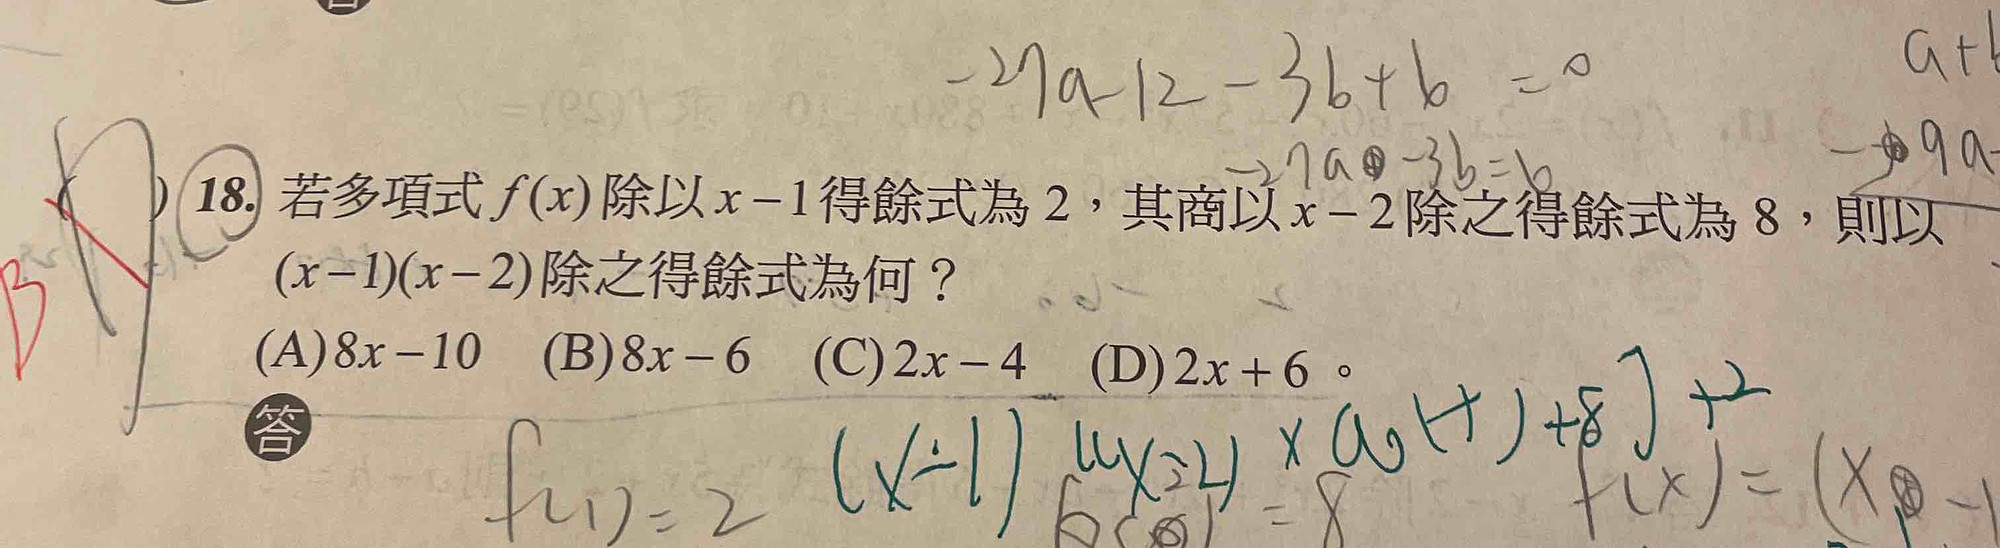 -27a-12-3b+b=0
-27a-3b=b
18. 若多項式 f(x) 除以 x－1 得餘式為 2，其商以 x－2 除之得餘式為 8，則以
(x－1)(x－2) 除之得餘式為何？
B
(A) 8x－10 (B) 8x－6 (C) 2x－4 (D) 2x＋6。
答
+8]+2
f(1)=2
=8
f(x)=(x